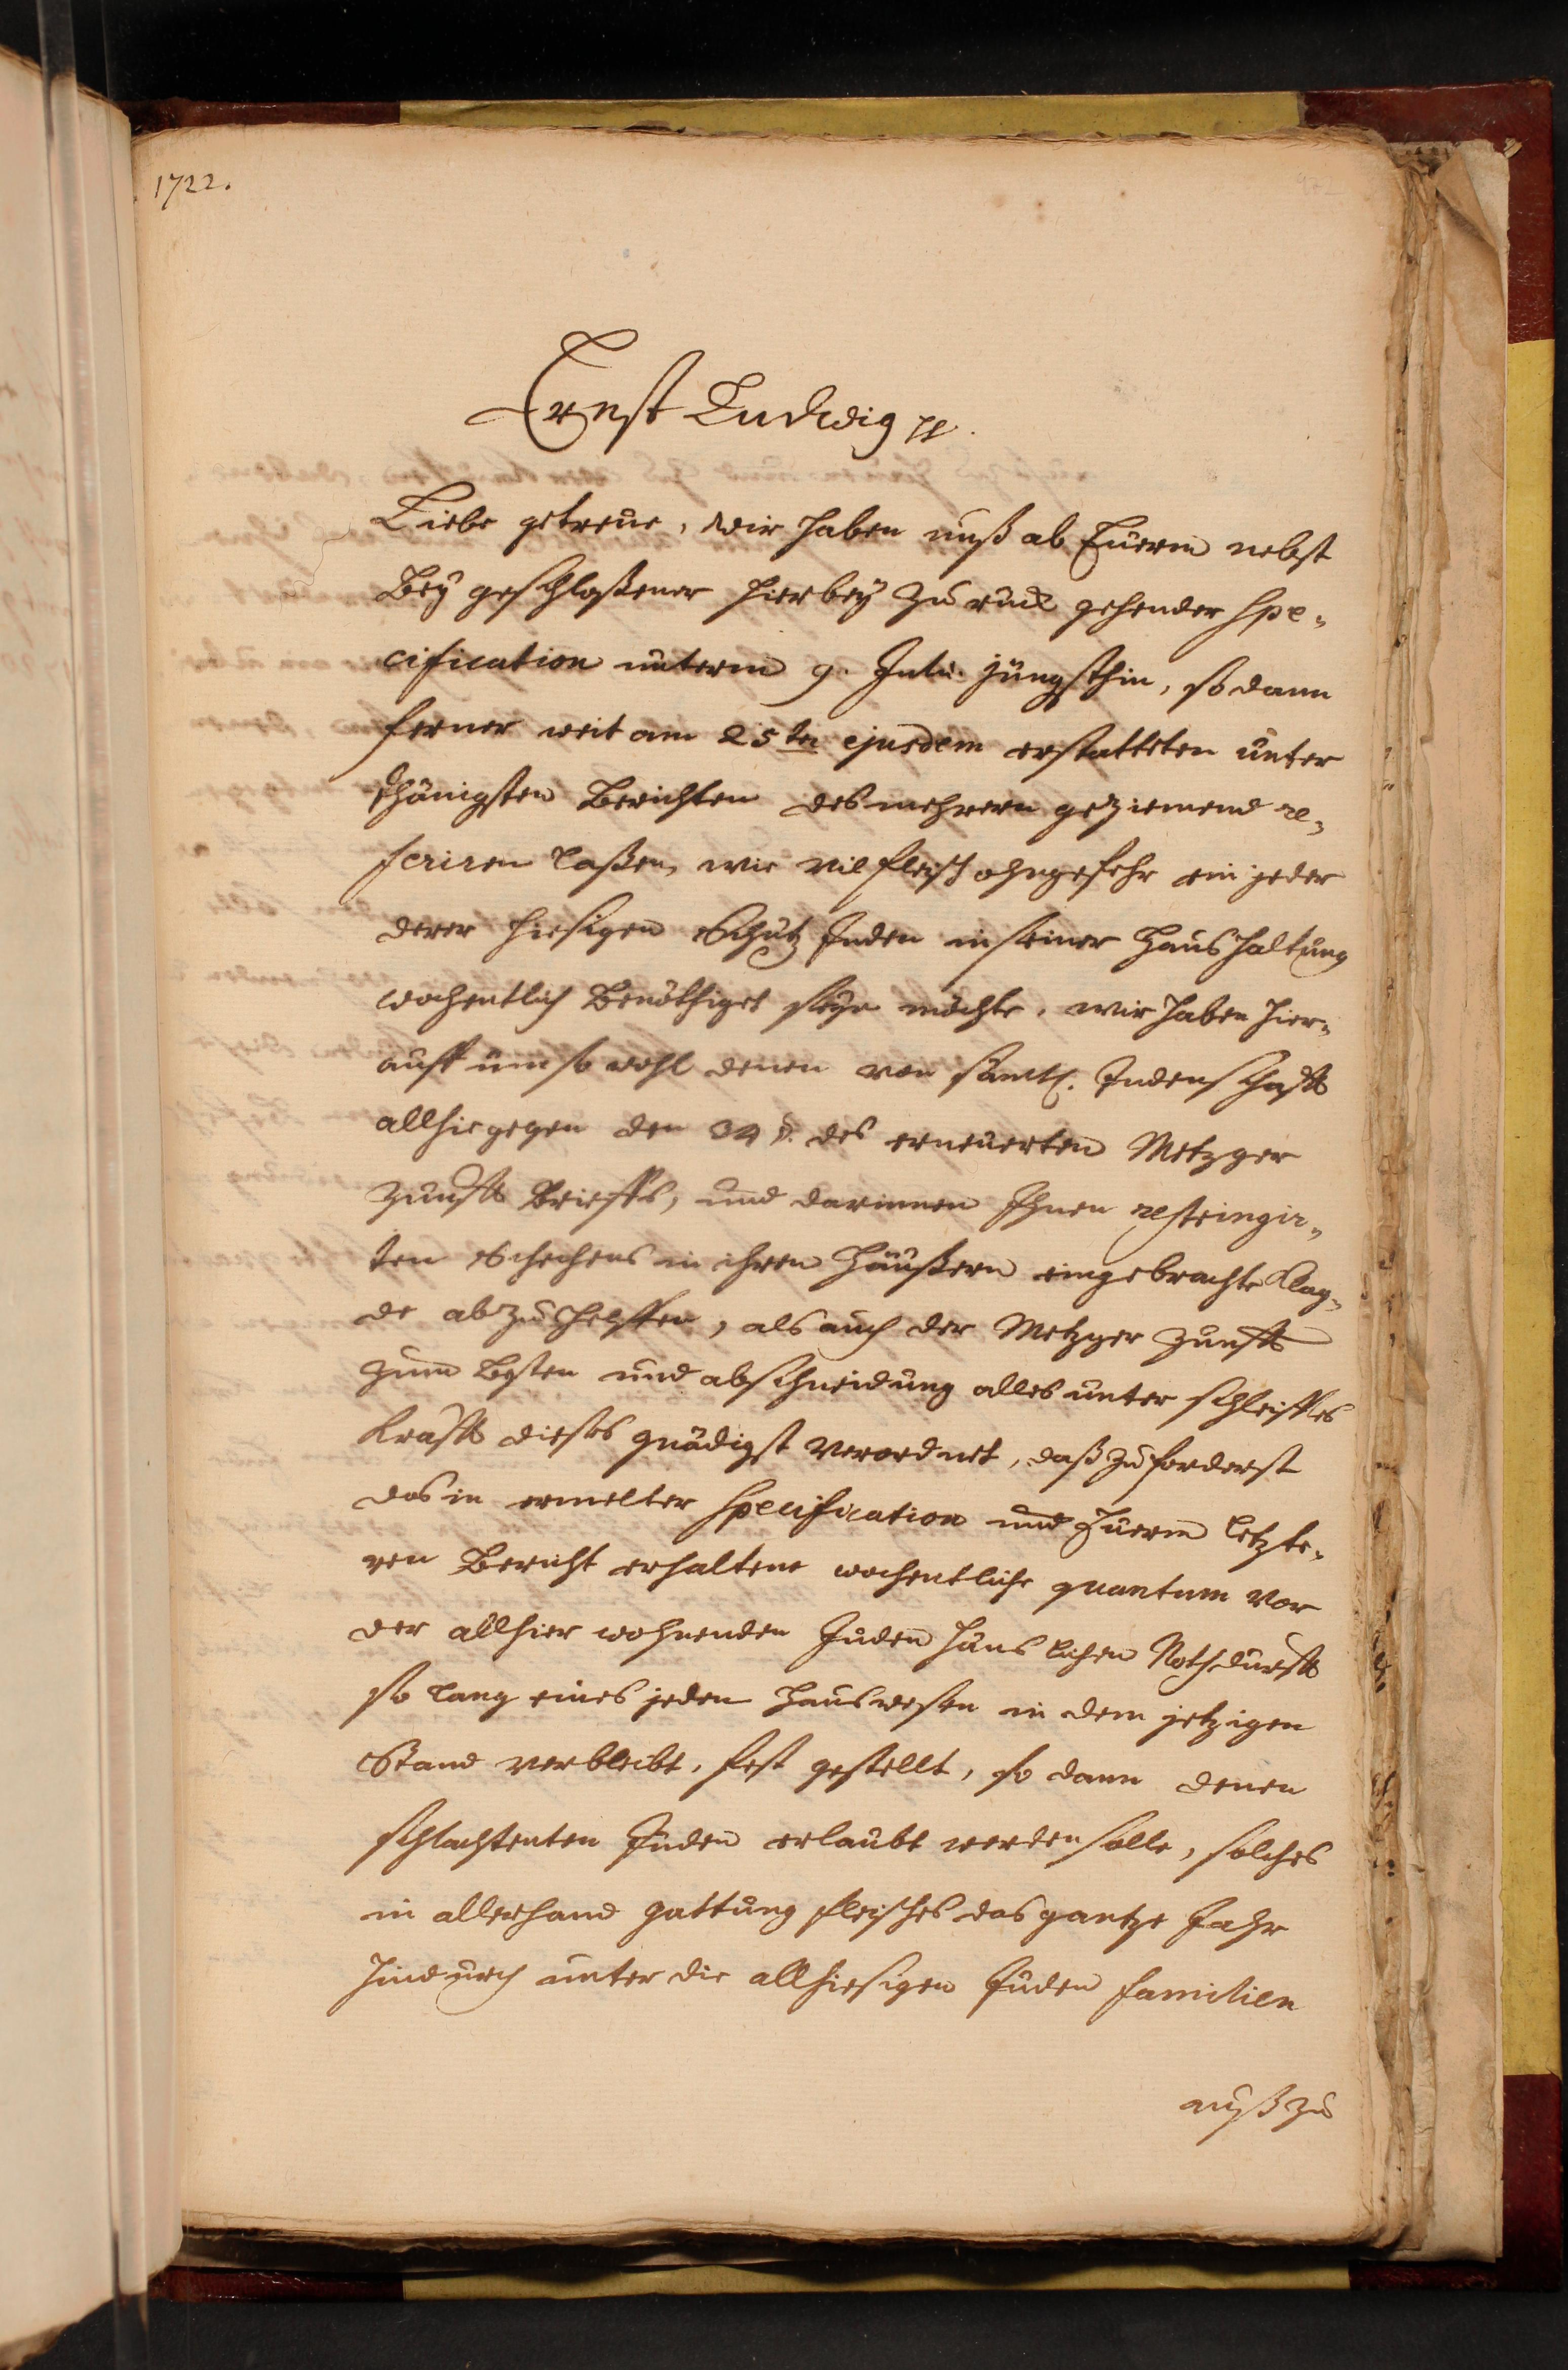 1722.
Ernst Ludwig pp.
Liebe getreue, Wir haben unß ab Euerm nebst
Bey geschloßener hierbey zu ruck gehender Spe-
cification unterm 9. Julii jüngsthin, so dann
ferner weit am 25ten ejusdem erstatteten unter
thänigsten Berichten des mehrern geziemend re-
feriren laßen, wie vil fleisch ohngefehr ein jeder
derer hiesigen Schutz Juden in seiner Haushaltung
wochentlich Benöthiget seyn möchte, wir haben hier-
auff um so wohl denen von sämtl. Judenschafft
allhie gegen den 34 §. des erneuerten Metzger
Zunfft Brieffs, und darinnen Ihnen restringir-
ten Schechens in ihren Häußern eingebrachte Klag-
de abzuhelffen, als auch der Metzger Zunfft
zum Besten und abschneidung alles unter schleiffes
Krafft dieses gnädigst verordnet, daß zu forderst
das in ermelter Specification und Euerm letzte-
ren Bericht erhaltene wochentliche quantum vor
der allhier wohnenden Juden häuslichen Nothdurfft
so lang eines jeden Hauswesen in dem jetzigen
Stand verbleibt, fest gestellt, so dann denen
schlachtenten Juden erlaubt werden solle, solches
in allerhand gattung fleisches das gantze Jahr
hindurch unter die allhiesigen Juden familien
auß zu